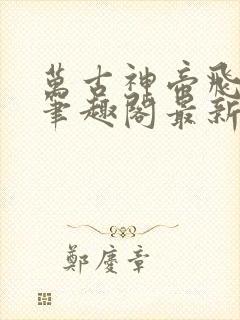 萬古神帝飛
筆趣閣最新
鄭慶章